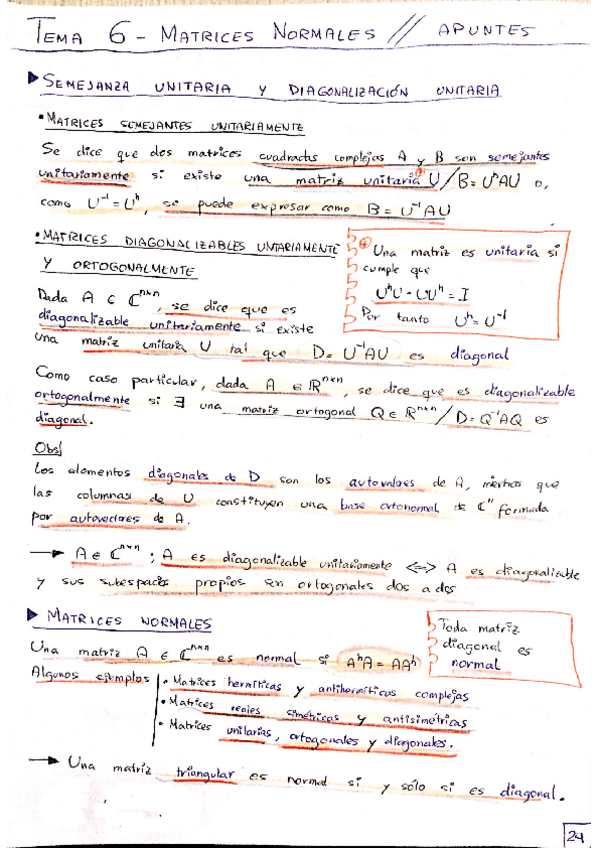 TEMA 6 - MATRICES NORMALES // APUNTES
▶ SEMEJANZA UNITARIA Y DIAGONALIZACIÓN UNITARIA
• MATRICES SEMEJANTES UNITARIAMENTE
Se dice que dos matrices cuadradas complejas A y B son semejantes
unitariamente si existe una matriz unitaria U / B = UʰAU o,
como U⁻¹ = Uʰ, se puede expresar como B = U⁻¹AU
• MATRICES DIAGONALIZABLES UNTARIAMENTE
Y ORTOGONALMENTE
⊕ Una matriz es unitaria si
cumple que
UʰU = UUʰ = I
Por tanto Uʰ = U⁻¹
Dada A ∈ ℂⁿˣⁿ, se dice que es
diagonalizable unitariamente si existe
una matriz unitaria U tal que D = U⁻¹AU es diagonal
Como caso particular, dada A ∈ ℝⁿˣⁿ, se dice que es diagonalizable
ortogonalmente si ∃ una matriz ortogonal Q ∈ ℝⁿˣⁿ / D = Q⁻¹AQ es
diagonal.
Obs/
Los elementos diagonales de D son los autovalores de A, mientras que
las columnas de U constituyen una base ortonormal de ℂⁿ formada
por autovectores de A.
→ A ∈ ℂⁿˣⁿ ; A es diagonalizable unitariamente <=> A es diagonalizable
y sus subespacios propios son ortogonales dos a dos
▶ MATRICES NORMALES
Toda matriz
diagonal es
normal
Una matriz A ∈ ℂⁿˣⁿ es normal si AʰA = AAʰ
Algunos ejemplos
• Matrices hermíticas y antihermíticas complejas
• Matrices reales simétricas y antisimétricas
• Matrices unitarias, ortogonales y diagonales.
→ Una matriz triangular es normal si y sólo si es diagonal.
24